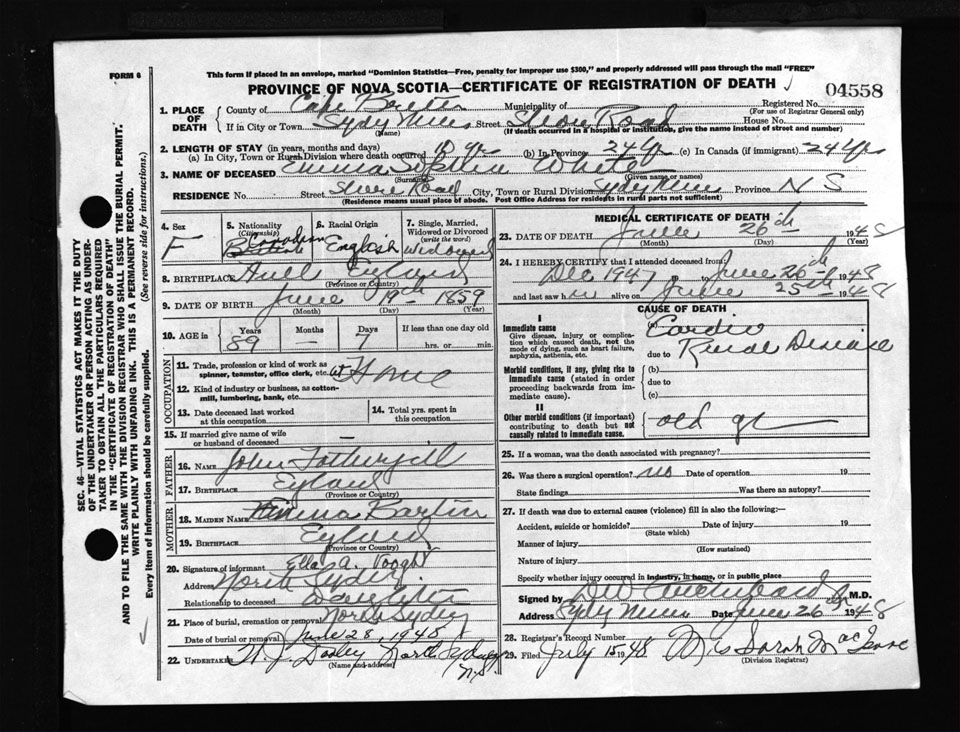 FORM 6
This form if placed in an envelope, marked "Dominion Statistics—Free, penalty for improper use $300," and properly addressed will pass through the mail "FREE"
PROVINCE OF NOVA SCOTIA—CERTIFICATE OF REGISTRATION OF DEATH
04558
1. PLACE OF DEATH
County of Cape Breton Municipality of Registered No.
(For use of Registrar General only)
If in City or Town Sydy Mines Street Shore Road House No.
(Name) (If death occurred in a hospital or institution, give the name instead of street and number)
2. LENGTH OF STAY (in years, months and days)
(a) In City, Town or Rural Division where death occurred 10 yrs (b) In Province 24 yr (c) In Canada (if immigrant) 24 yrs
3. NAME OF DECEASED Emma Sophia White
(Surname) (Given name or names)
RESIDENCE No. Street Shore Road City, Town or Rural Division Sydy Mines Province N S
(Residence means usual place of abode. Post Office Address for residents in rural parts not sufficient)
4. Sex
F
5. Nationality (Citizenship)
Canadian
British
6. Racial Origin
English
7. Single, Married, Widowed or Divorced (write the word)
Widowed
8. BIRTHPLACE Hull England
(Province or Country)
9. DATE OF BIRTH June 19th 1859
(Month) (Day) (Year)
10. AGE in
Years Months Days If less than one day old
89 — 7 hrs. or min.
OCCUPATION
11. Trade, profession or kind of work as spinner, teamster, office clerk, etc. at Home
12. Kind of industry or business, as cotton-mill, lumbering, bank, etc.
13. Date deceased last worked at this occupation
14. Total yrs. spent in this occupation
15. If married give name of wife or husband of deceased —
FATHER
16. NAME John Fothergill
17. BIRTHPLACE England
(Province or Country)
MOTHER
18. MAIDEN NAME Emma
19. BIRTHPLACE England
(Province or Country)
20. Signature of informant Ella A. Voogh
Address North Sydney
Relationship to deceased Daughter
21. Place of burial, cremation or removal North Sydney
Date of burial or removal June 28, 1948
22. UNDERTAKER W. J. Dooley North Sydney N.S.
(Name and address)
MEDICAL CERTIFICATE OF DEATH
23. DATE OF DEATH June 26th 1948
(Month) (Day) (Year)
24. I HEREBY CERTIFY that I attended deceased from
Dec 1947 to June 26th 1948
and last saw h alive on June 25th 1948
CAUSE OF DEATH
I
Immediate cause
Give disease, injury or complication which caused death, not the mode of dying, such as heart failure, asphyxia, asthenia, etc.
(a) Cardio
due to Renal Disease
Morbid conditions, if any, giving rise to immediate cause (stated in order proceeding backwards from immediate cause).
(b)
due to
(c)
II
Other morbid conditions (if important) contributing to death but not causally related to immediate cause.
old age
25. If a woman, was the death associated with pregnancy?
26. Was there a surgical operation? no Date of operation 19
State findings Was there an autopsy?
27. If death was due to external causes (violence) fill in also the following:—
Accident, suicide or homicide? Date of injury 19
(State which)
Manner of injury
(How sustained)
Nature of injury
Specify whether injury occurred in industry, in home, or in public place
Signed by M.D.
Address Sydy Mines Date June 26th 1948
28. Registrar's Record Number
29. Filed July 15 1948 Mrs Sarah MacIsaac
(Division Registrar)
SEC. 46—VITAL STATISTICS ACT MAKES IT THE DUTY
OF THE UNDERTAKER OR PERSON ACTING AS UNDER-
TAKER TO OBTAIN ALL THE PARTICULARS REQUIRED
IN THE "CERTIFICATE OF REGISTRATION OF DEATH"
AND TO FILE THE SAME WITH THE DIVISION REGISTRAR WHO SHALL ISSUE THE BURIAL PERMIT.
WRITE PLAINLY WITH UNFADING INK. THIS IS A PERMANENT RECORD.
Every item of information should be carefully supplied. (See reverse side for instructions.)